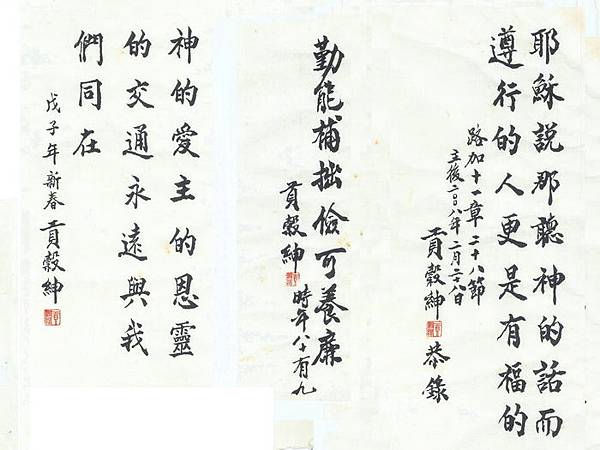 耶穌說那聽神的話而
遵行的人更是有福的
路加十一章二十八節
主後二〇〇八年二月二八日
貢穀紳
恭錄
勤能補拙儉可養廉
貢穀紳
時年八十有九
神的愛主的恩靈
的交通永遠與我
們同在
戊子年新春
貢穀紳